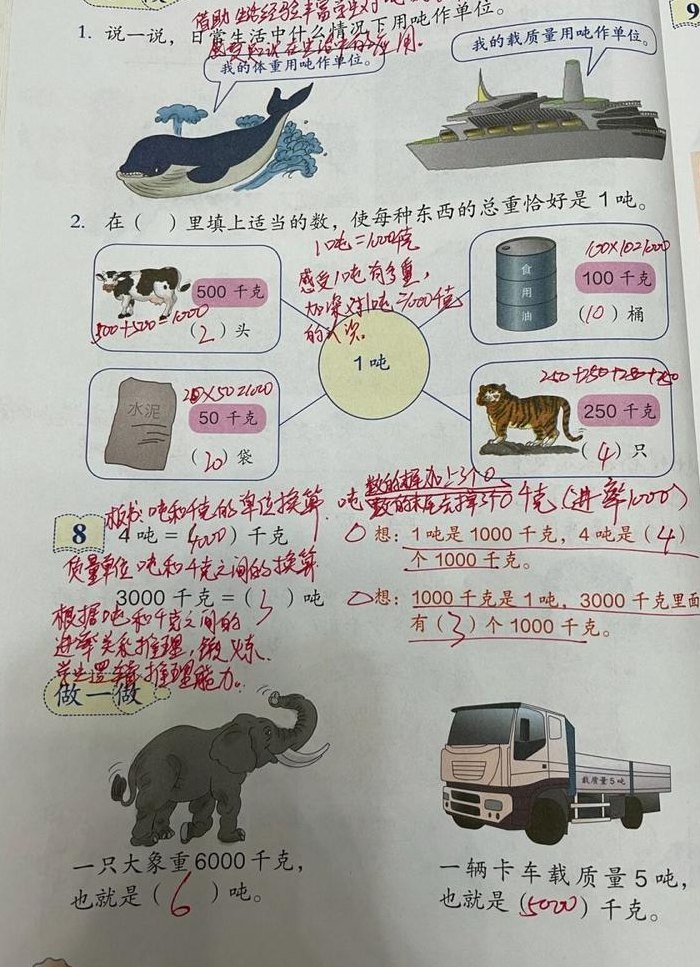 借助生活经验丰富学生对
1. 说一说，日常生活中什么情况下用吨作单位。
我的体重用吨作单位。
我的载质量用吨作单位。
2. 在（ ）里填上适当的数，使每种东西的总重恰好是1吨。
1吨=1000千克
感受1吨有多重，
加深对1吨=1000千克
的认识。
500千克
500+500=1000
（2）头
食用油
100×10=1000
100千克
（10）桶
1吨
水泥
20×50=1000
50千克
（20）袋
250+250+250+250
250千克
（4）只
板书 吨和千克的单位换算
吨 数的末尾加上3个0
数的末尾去掉3个0 千克（进率1000）
8
4吨=（4000）千克
想：1吨是1000千克，4吨是（4）
个1000千克。
质量单位吨和千克之间的换算
3000千克=（3）吨
想：1000千克是1吨，3000千克里面
有（3）个1000千克。
根据吨和千克之间的
进率关系推理，锻炼
学生逻辑推理能力。
做一做
载质量5吨
一只大象重6000千克，
也就是（6）吨。
一辆卡车载质量5吨，
也就是（5000）千克。
9